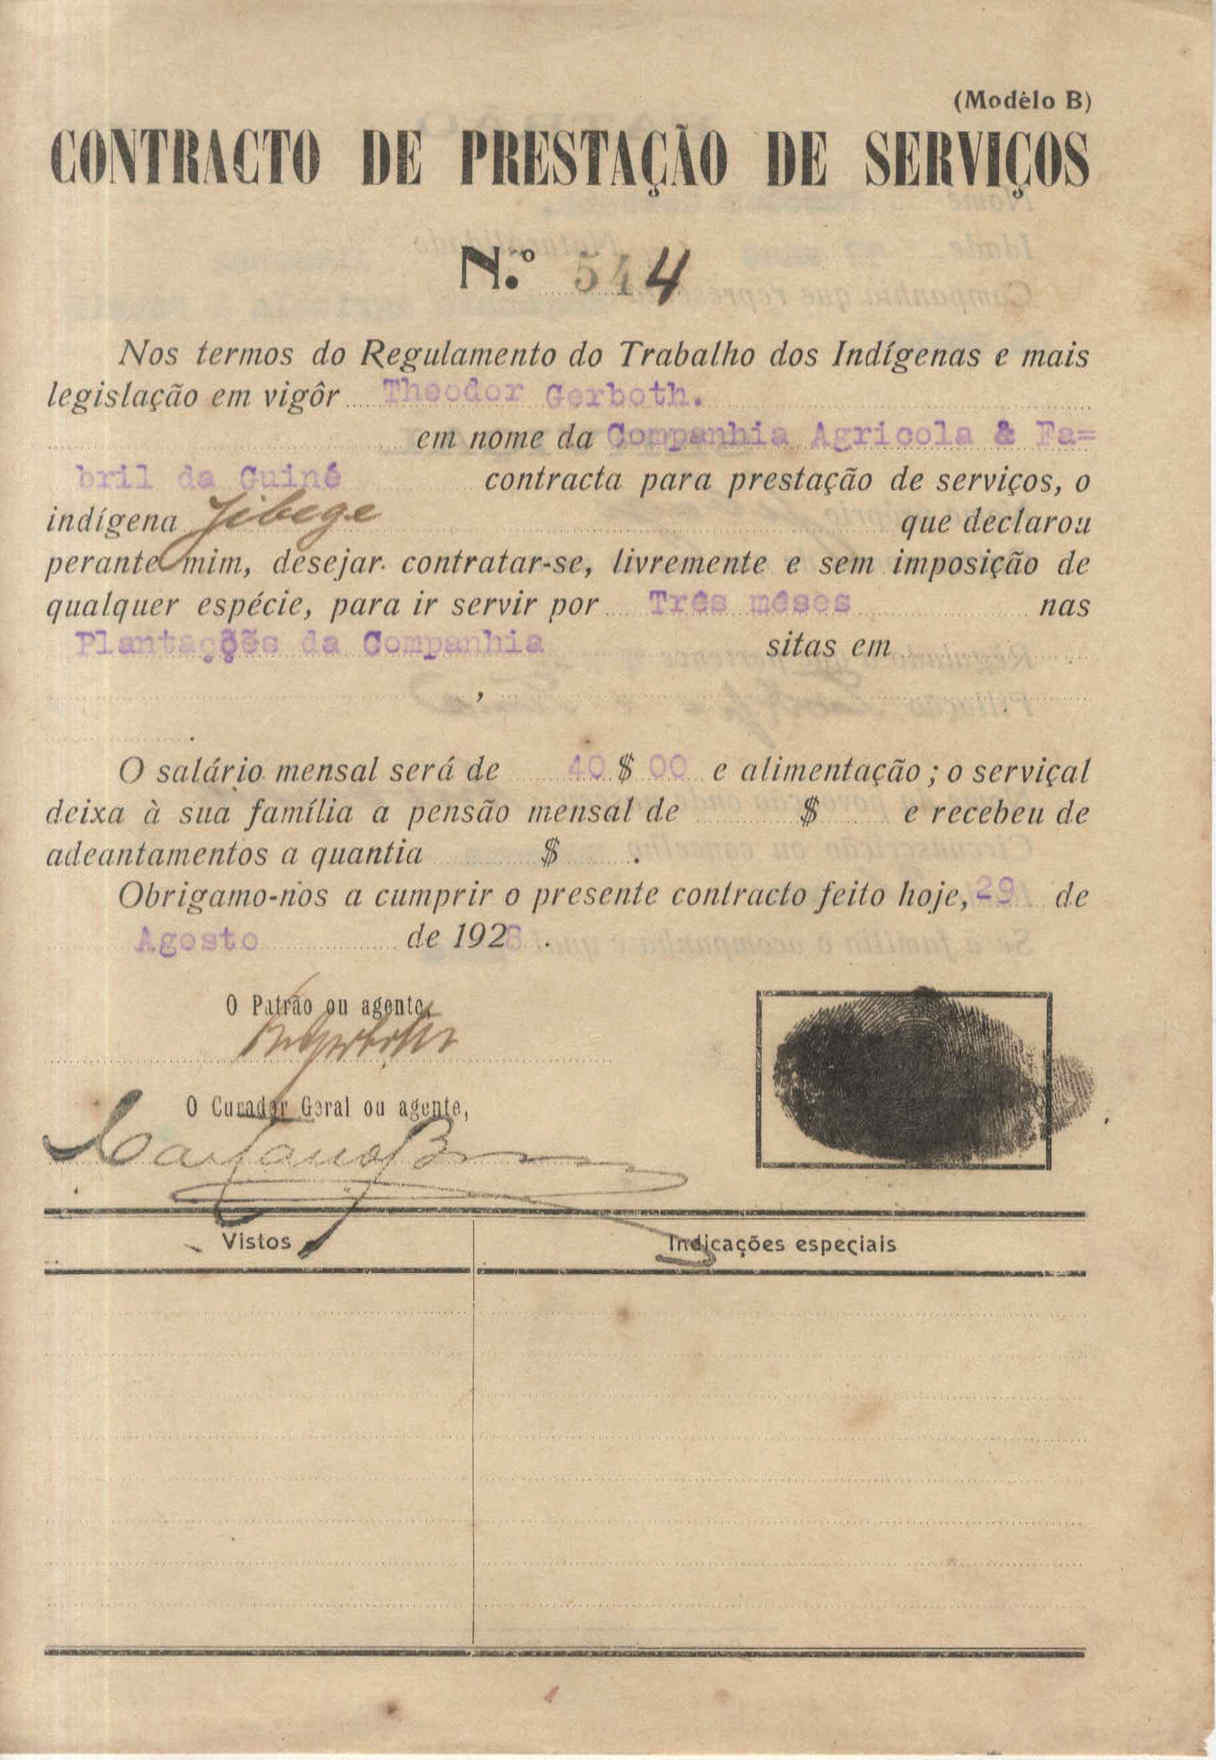 (Modêlo B)
CONTRACTO DE PRESTAÇÃO DE SERVIÇOS
N.º 544
Nos termos do Regulamento do Trabalho dos Indígenas e mais
legislação em vigôr Theodor Gerboth.
em nome da Companhia Agricola & Fa=
bril da Guiné contracta para prestação de serviços, o
indígena Jibege que declarou
perante mim, desejar contratar-se, livremente e sem imposição de
qualquer espécie, para ir servir por Três mêses nas
Plantações da Companhia sitas em
,
.
O salário mensal será de 40 $ 00 e alimentação; o serviçal
deixa à sua família a pensão mensal de $ e recebeu de
adeantamentos a quantia $ .
Obrigamo-nos a cumprir o presente contracto feito hoje, 29 de
Agosto de 1926 .
O Patrão ou agente,
O Curador Geral ou agente,
Vistos
Indicações especiais